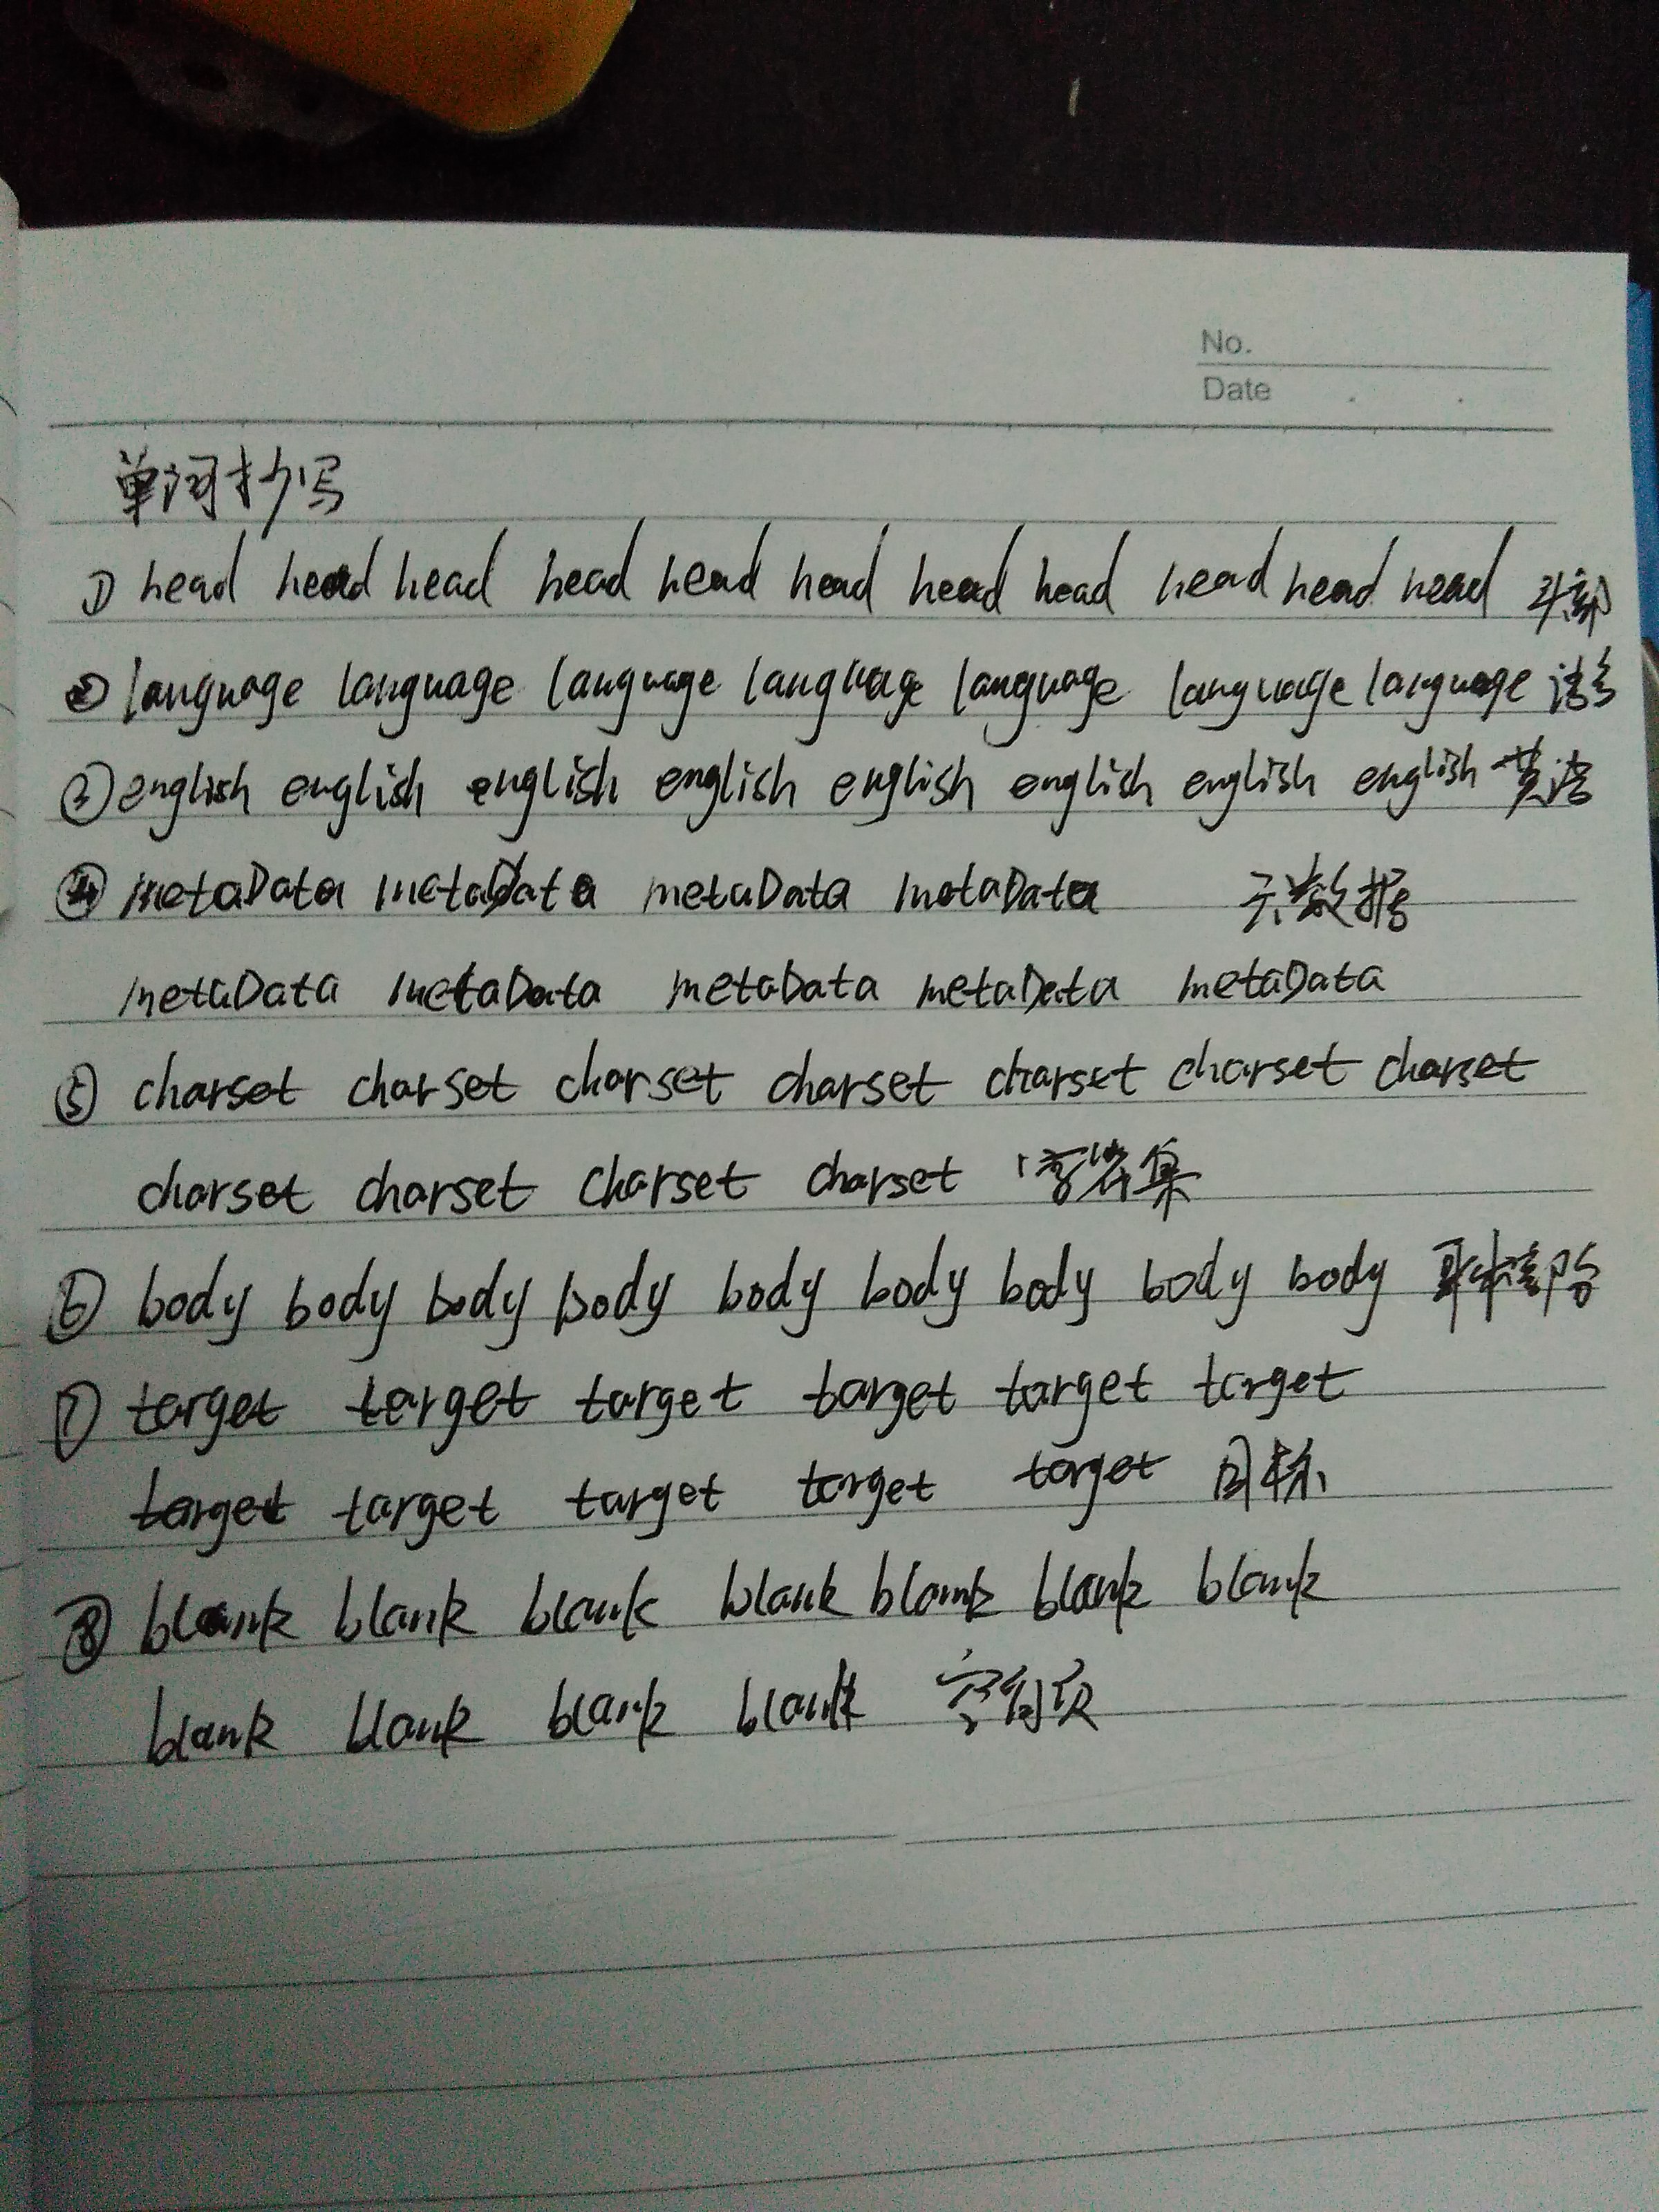 No.
Date
单词抄写
① head head head head head head head head head head head 头部
② language language language language language language language 语言
③ english english english english english english english english 英语
④ metaData metaData metaData metaData 元数据
metaData metaData metaData metaData metaData
⑤ charset charset charset charset charset charset charset
charset charset charset charset 集
⑥ body body body body body body body body body
⑦ target target target target target target
target target target target target 目标
⑧ blank blank blank blank blank blank blank
blank blank blank blank 空白页